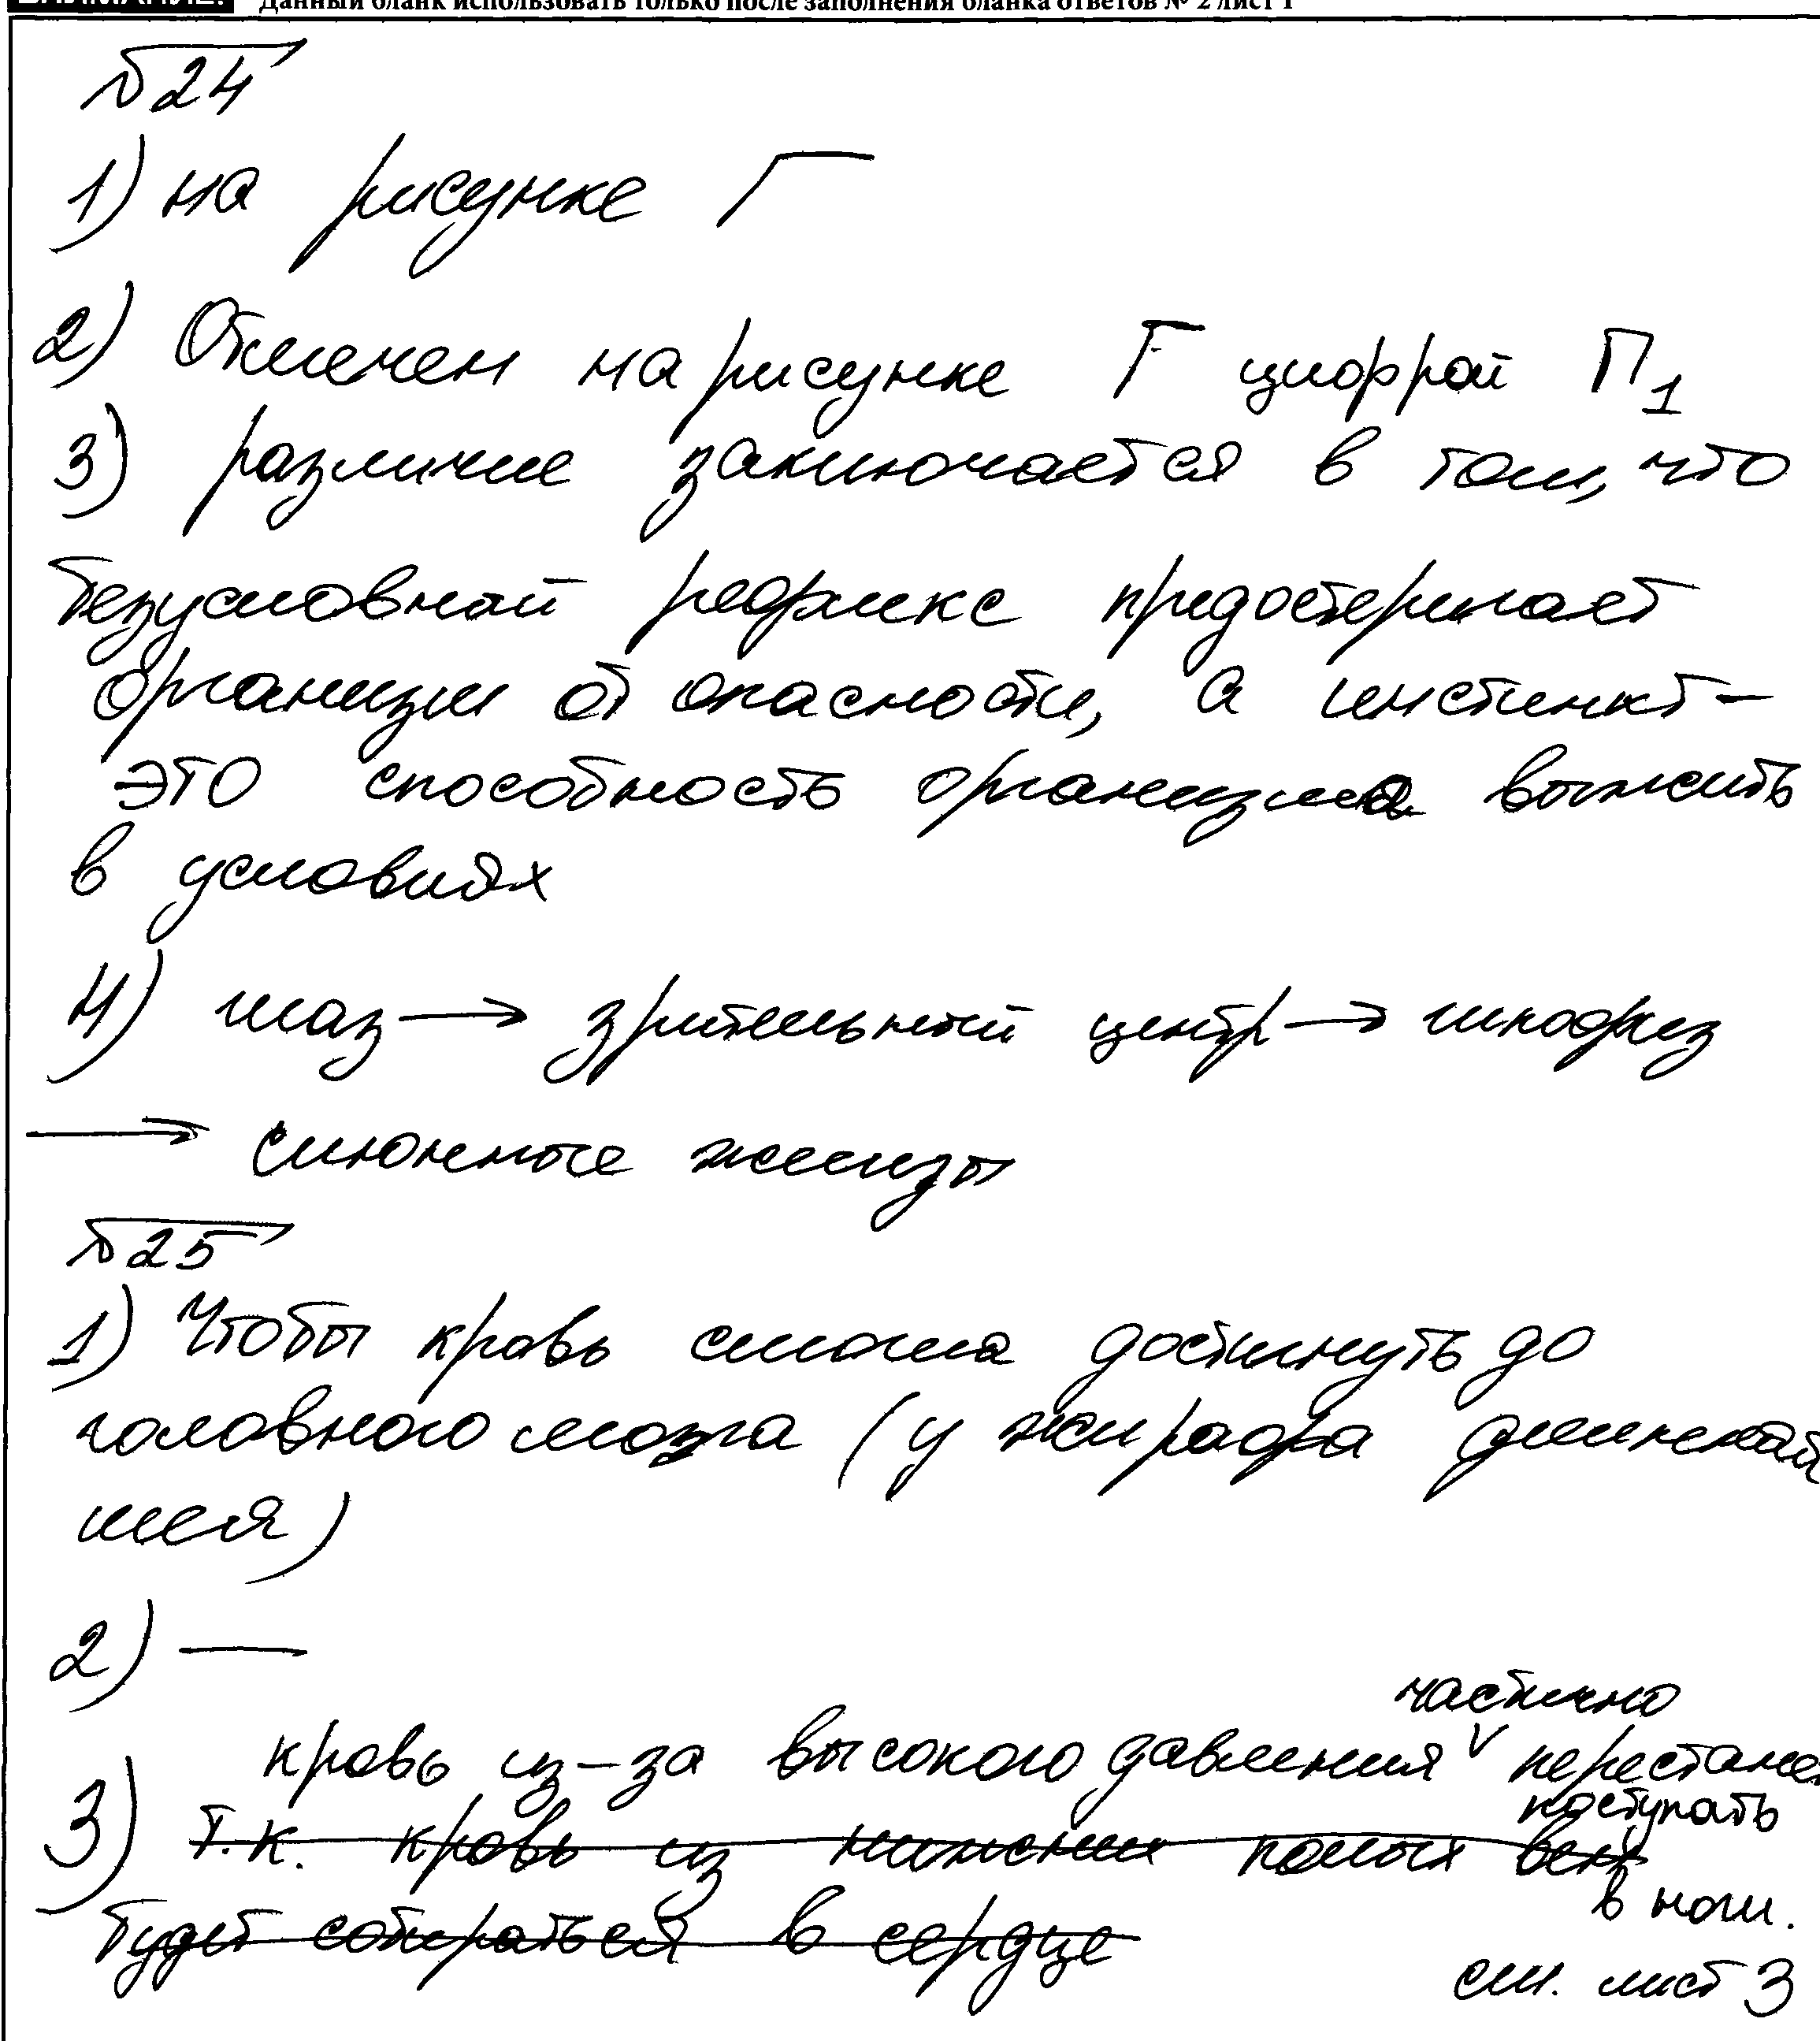 ВНИМАНИЕ! Данный бланк использовать только после заполнения бланка ответов № 2 лист 1
№24
1) на рисунке Г
2) Отмечен на рисунке Г цифрой П1
3) различие заключается в том, что
безусловный рефлекс предостерегает
организм от опасности, а инстинкт -
это способность организма выжить
в условиях
4) глаз → зрительный центр → гипофиз
→ слюнные железы
№25
1) Чтобы кровь смогла достигнуть до
головного мозга (у жирафа длинная
шея)
2) —
частично
кровь из-за высокого давления ∨ перестанет
поступать
3) т.к. кровь из нижних полых вен
в ноги.
будет собираться в сердце
см. лист 3